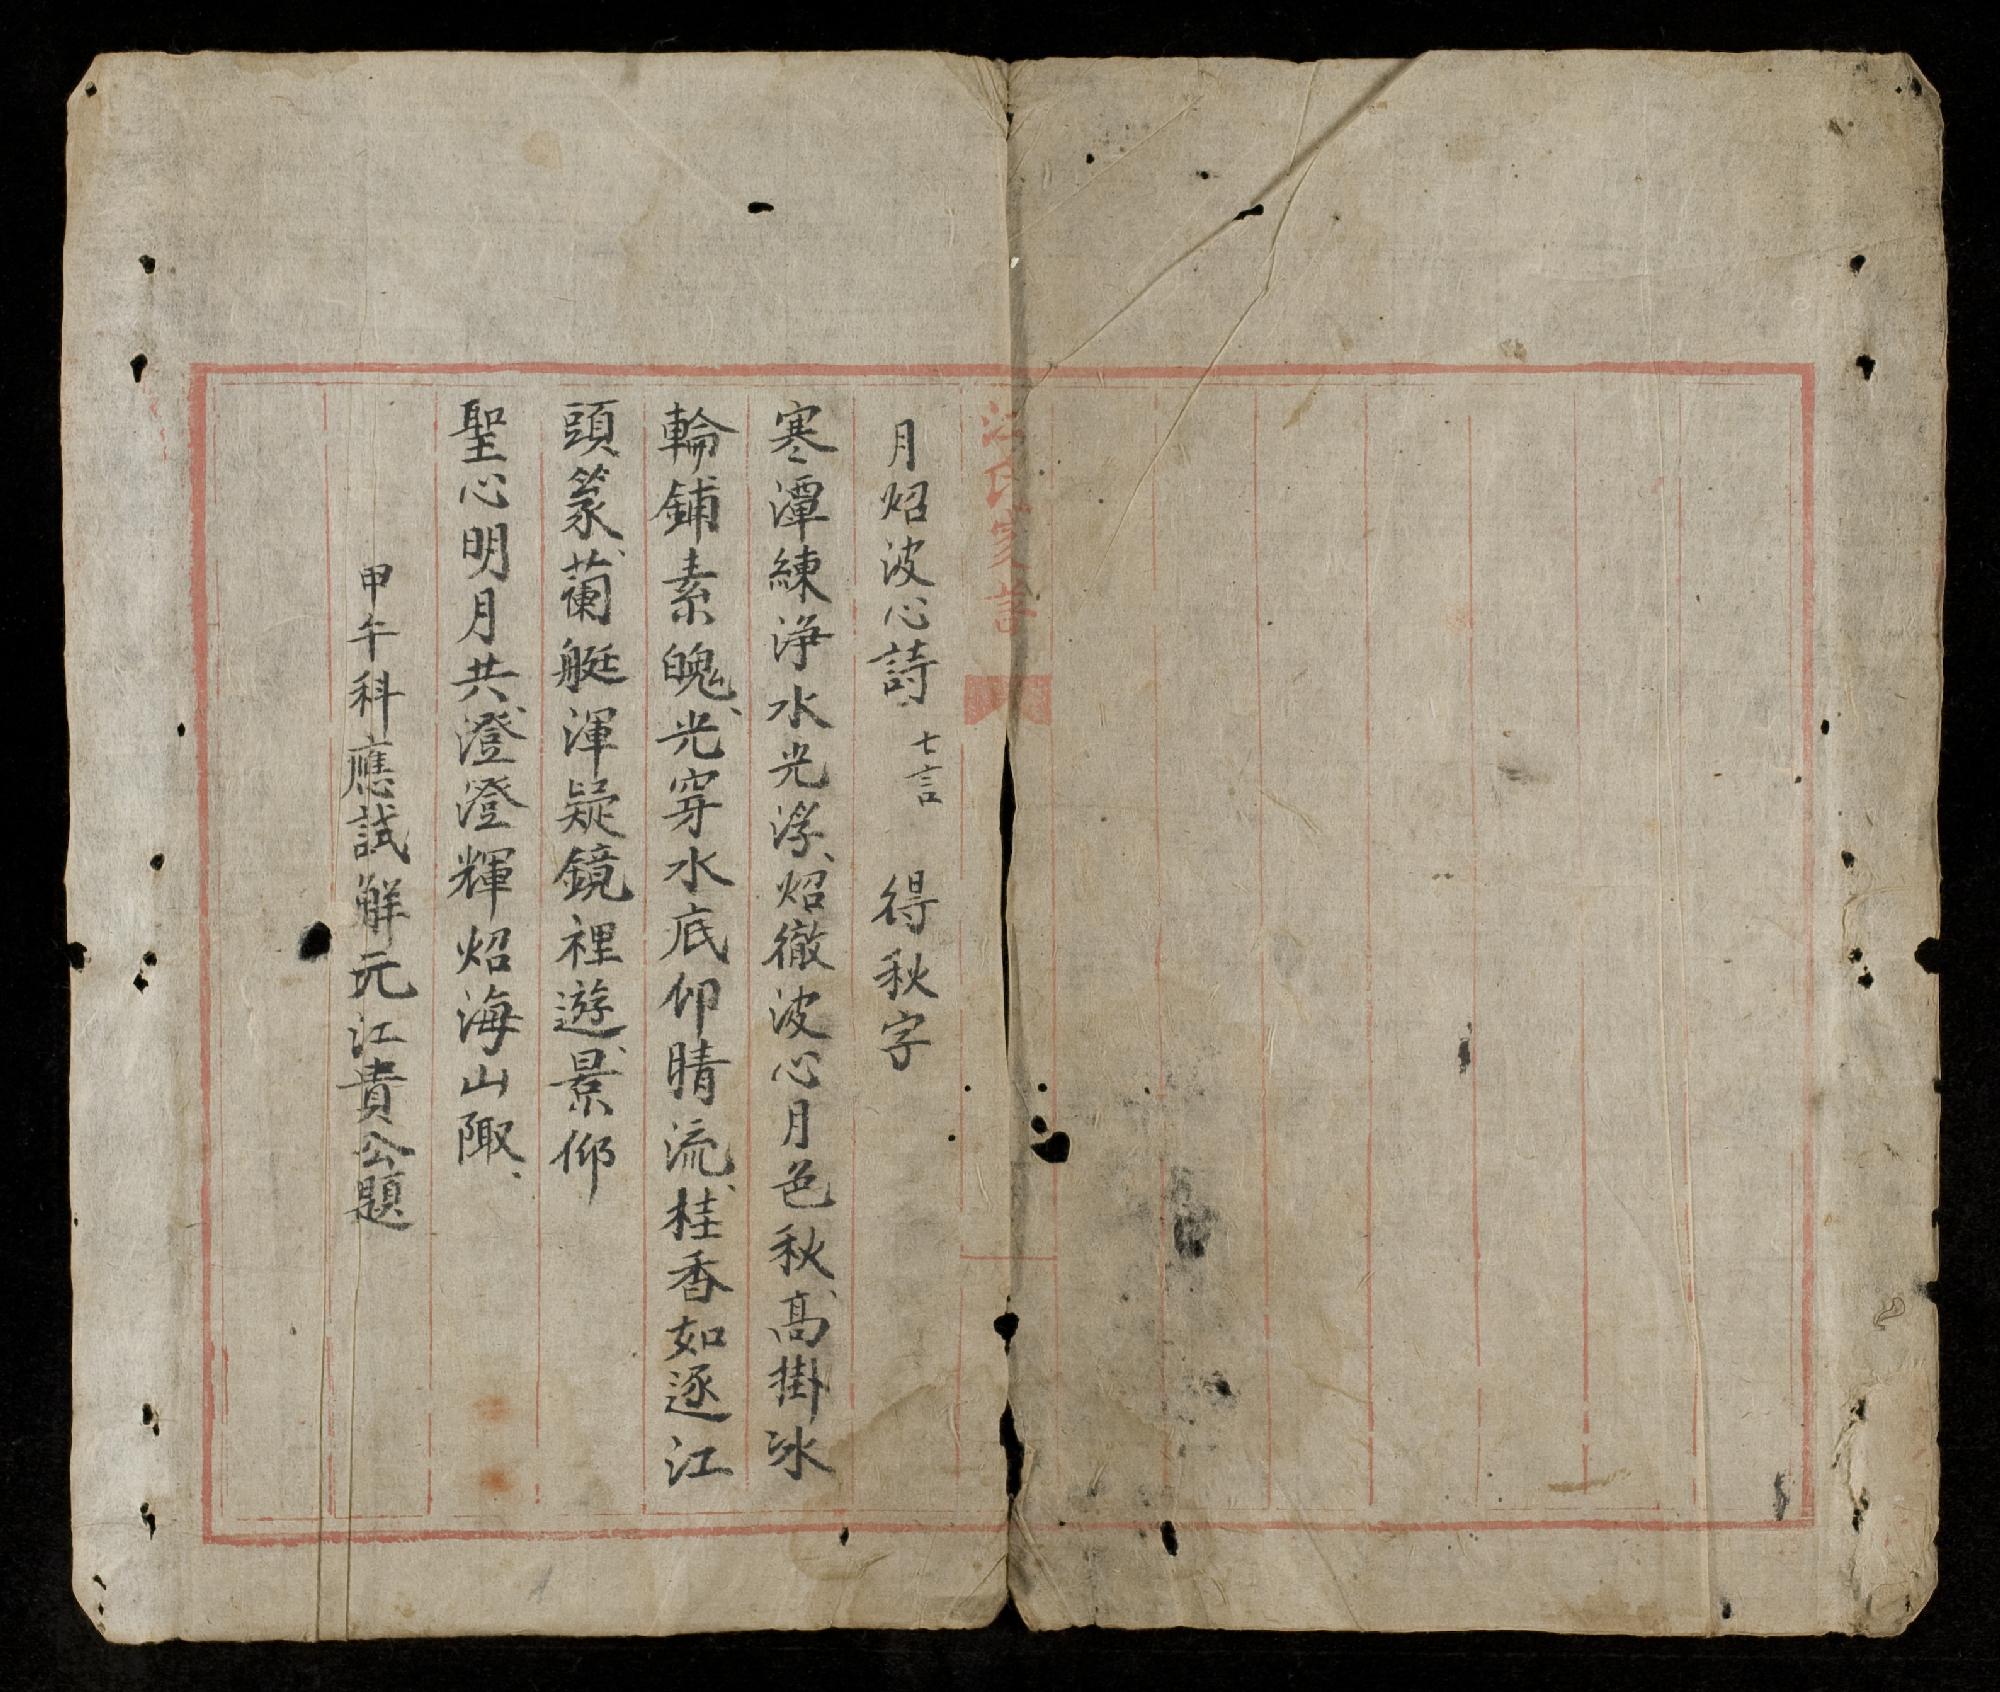 江氏家譜
月炤波心詩 七言 得秋字
寒潭練浄水光浮、炤徹波心月色秋、高掛冰
輪鋪素魄、光穿水底仰晴流、桂香如逐江
頭篆、蘭艇渾疑鏡裡遊、景仰
聖心明月共、澄澄輝炤海山陬、
甲午科應試解元江貴公題